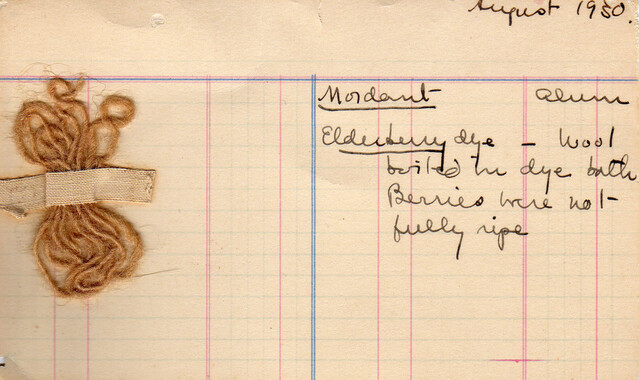 August 1930.
Mordant Alum
Elderberry dye – Wool
boiled in dye bath
Berries were not
fully ripe